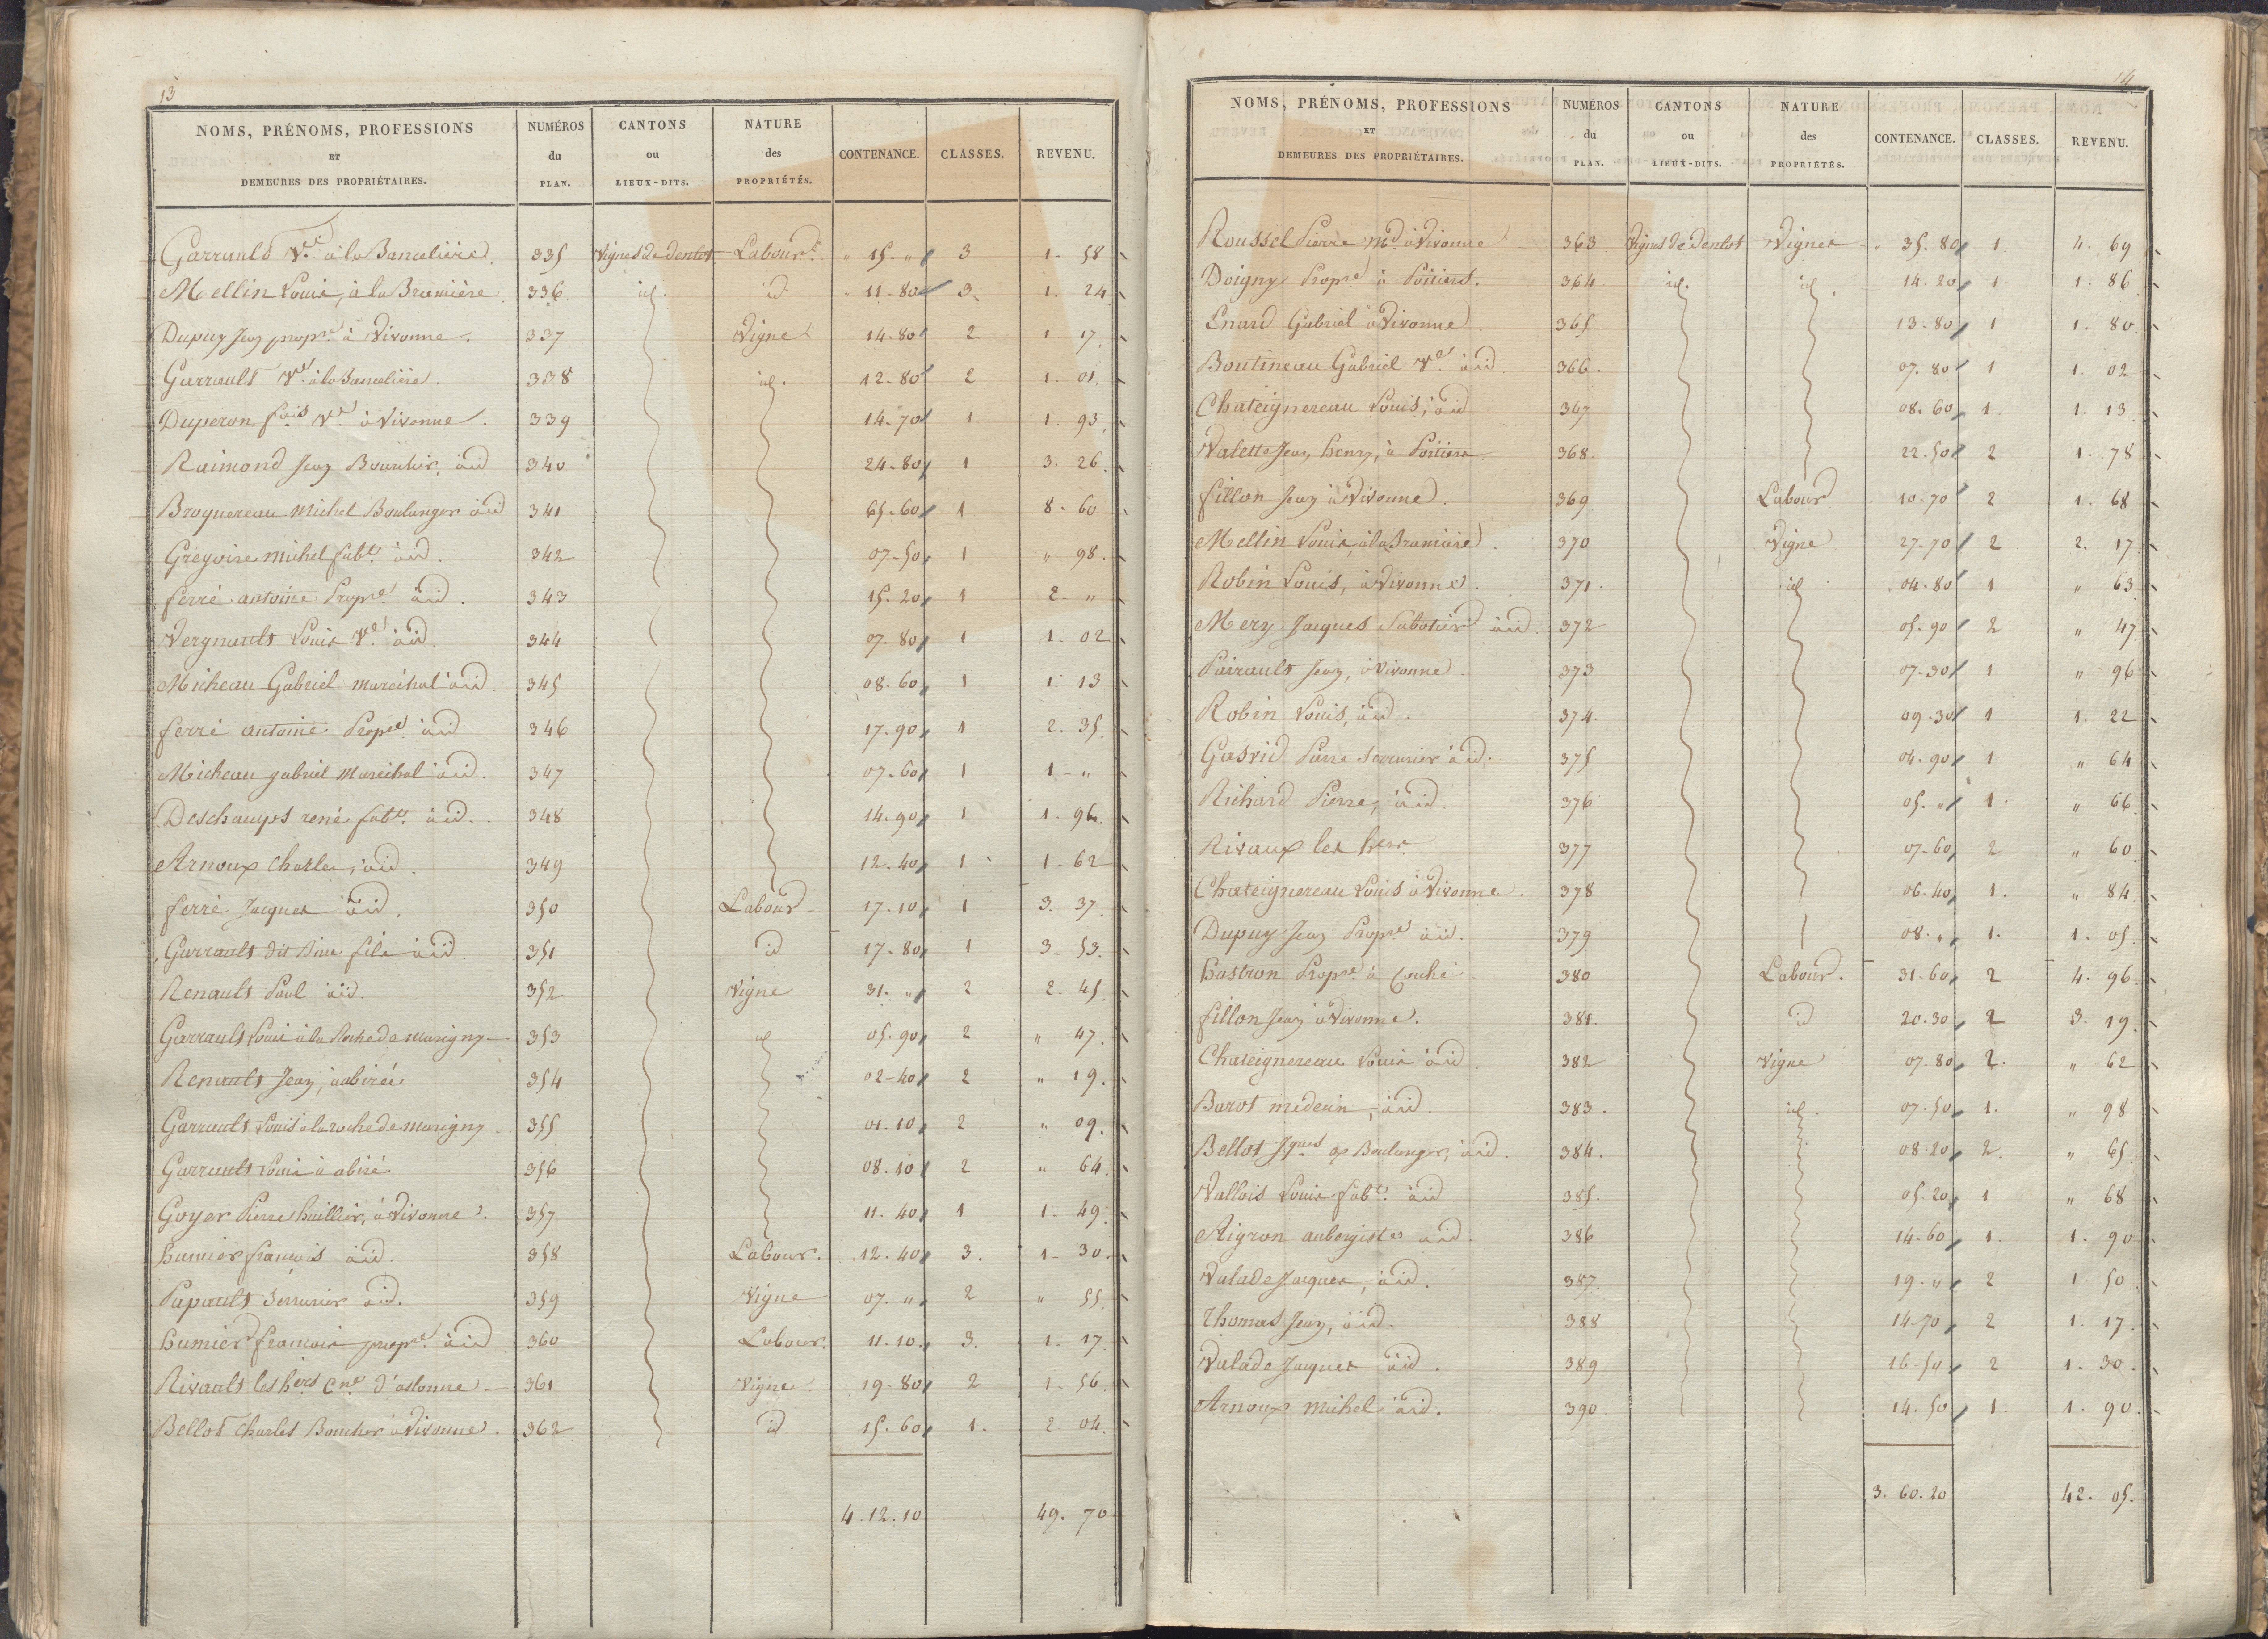 13
NOMS, PRÉNOMS, PROFESSIONS ET DEMEURES DES PROPRIÉTAIRES. | NUMÉROS du PLAN. | CANTONS ou LIEUX-DITS. | NATURE des PROPRIÉTÉS. | CONTENANCE. | CLASSES. | REVENU.
Garrault Vve à la Banceliere | 335 | Vignes de Dentot | Labour | " 15 " | 3 | 1. 58
Mellin Louis, à la Bramière | 336 | id. | id | 11-80 | 3 | 1. 24
Dupuy Jean propre à Vivonne | 337 | Vigne | 14-80 | 2 | 1 17
Garrault Ve à la Banceliere | 338 | id. | 12-80 | 2 | 1. 01
Duperon fois Ve à Vivonne | 339 | 14-70 | 1 | 1. 93
Raimond Jean Bourelier, à id | 340 | 24-80 | 1 | 3. 26
Broquereau Michel Boulanger à id | 341 | 65-60 | 1 | 8. 60
Gregoire Michel fabt à id. | 342 | 07-50 | 1 | " 98
ferré antoine Propre à id. | 343 | 15-20 | 1 | 2 "
Vergnault Louis Ve à id. | 344 | 07-80 | 1 | 1. 02
Micheau Gabriel marechal à id | 345 | 08-60 | 1 | 1. 13
ferré antoine Propre à id | 346 | 17-90 | 1 | 2. 35
Micheau gabriel marechal à id. | 347 | 07-60 | 1 | 1 "
Deschamps rené fabt à id. | 348 | 14-90 | 1 | 1. 96
Arnoux Charles, à id. | 349 | 12-40 | 1 | 1. 62
ferré Jacques à id. | 350 | Labour | 17-10 | 1 | 3. 37
Garrault dit fils à id. | 351 | id | 17-80 | 1 | 3. 53
Renault Paul à id. | 352 | Vigne | 31. " | 2 | 2. 45
Garrault Louis à la Roche de Marigny | 353 | id | 05-90 | 2 | " 47
Renault Jean, à abiré | 354 | 02-40 | 2 | " 19
Garrault Louis à la roche de marigny | 355 | 01-10 | 2 | " 09
Garrault Louis à abiré | 356 | 08-10 | 2 | " 64
Goyer Pierre huillier, à Vivonne | 357 | 11-40 | 1 | 1. 49
humier francois à id. | 358 | Labour. | 12-40 | 3. | 1. 30
Papault Serrurier à id. | 359 | Vigne | 07. " | 2 | " 55
humier francois propre à id | 360 | Labour. | 11-10 | 3. | 1. 17
Rivault les hers Cne d'aslonne | 361 | Vigne | 19-80 | 2 | 1. 56
Bellot Charles Boucher à Vivonne. | 362 | id | 15-60 | 1. | 2 04
4.12.10 | 49. 70
14
NOMS, PRÉNOMS, PROFESSIONS ET DEMEURES DES PROPRIÉTAIRES. | NUMÉROS du PLAN. | CANTONS ou LIEUX-DITS. | NATURE des PROPRIÉTÉS. | CONTENANCE. | CLASSES. | REVENU.
Roussel Pierre Md à Vivonne | 363 | Vignes de Dentot | Vignes | 35. 80 | 1. | 4. 69
Doigny Propre à Poitiers. | 364 | id. | id | 14-20 | 1 | 1. 86
Enard Gabriel à Vivonne | 365 | 13-80 | 1 | 1. 80
Boutineau Gabriel Ve à id. | 366. | 07-80 | 1 | 1. 02
Chateignereau Louis, à id | 367 | 08-60 | 1. | 1. 13
Valette Jean henry, à Poitiers | 368. | 22-50 | 2 | 1. 78
fillon Jean à Vivonne. | 369 | Labour | 10-70 | 2 | 1. 68
Mellin Louis, à la Bramière | 370 | Vigne | 27-70 | 2 | 2. 17
Robin Louis, à Vivonne. | 371. | id | 04-80 | 1 | " 63
Mery Jacques Sabotier à id. | 372 | 05-90 | 2 | " 47
Pairault Jean, à Vivonne | 373 | 07-30 | 1 | " 96
Robin Louis, à id. | 374. | 09-30 | 1 | 1. 22
Gasrid Pierre Serrurier à id. | 375 | 04-90 | 1 | " 64
Richard Pierre, à id | 376 | 05. " | 1. | " 66
Rivaux les hers | 377 | 07-60 | 2 | " 60
Chateignereau Louis à Vivonne | 378 | 06-40 | 1. | " 84
Dupuy Jean Propre à id. | 379 | 08. " | 1. | 1. 05
hastron Propre à Couhé | 380 | Labour. | 31-60 | 2 | 4. 96
fillon Jean à Vivonne. | 381. | id | 20-30 | 2 | 3. 19
Chateignereau Louis à id | 382 | Vigne | 07-80 | 2. | " 62
Barot medecin, à id. | 383. | id. | 07-50 | 1. | " 98
Bellot Jques Boulanger, à id. | 384. | 08-20 | 2. | " 65
Vallois Louis fabt à id | 385. | 05-20 | 1 | " 68
Aigron aubergiste à id. | 386 | 14-60 | 1. | 1. 90
Valade Jacques, à id. | 387 | 19. " | 2 | 1. 50
Thomas Jean, à id. | 388 | 14-70 | 2 | 1. 17
Valade Jacques à id. | 389 | 16-50 | 2 | 1. 30
Arnoux Michel à id. | 390 | 14-50 | 1 | 1. 90
3. 60. 20 | 42. 05.